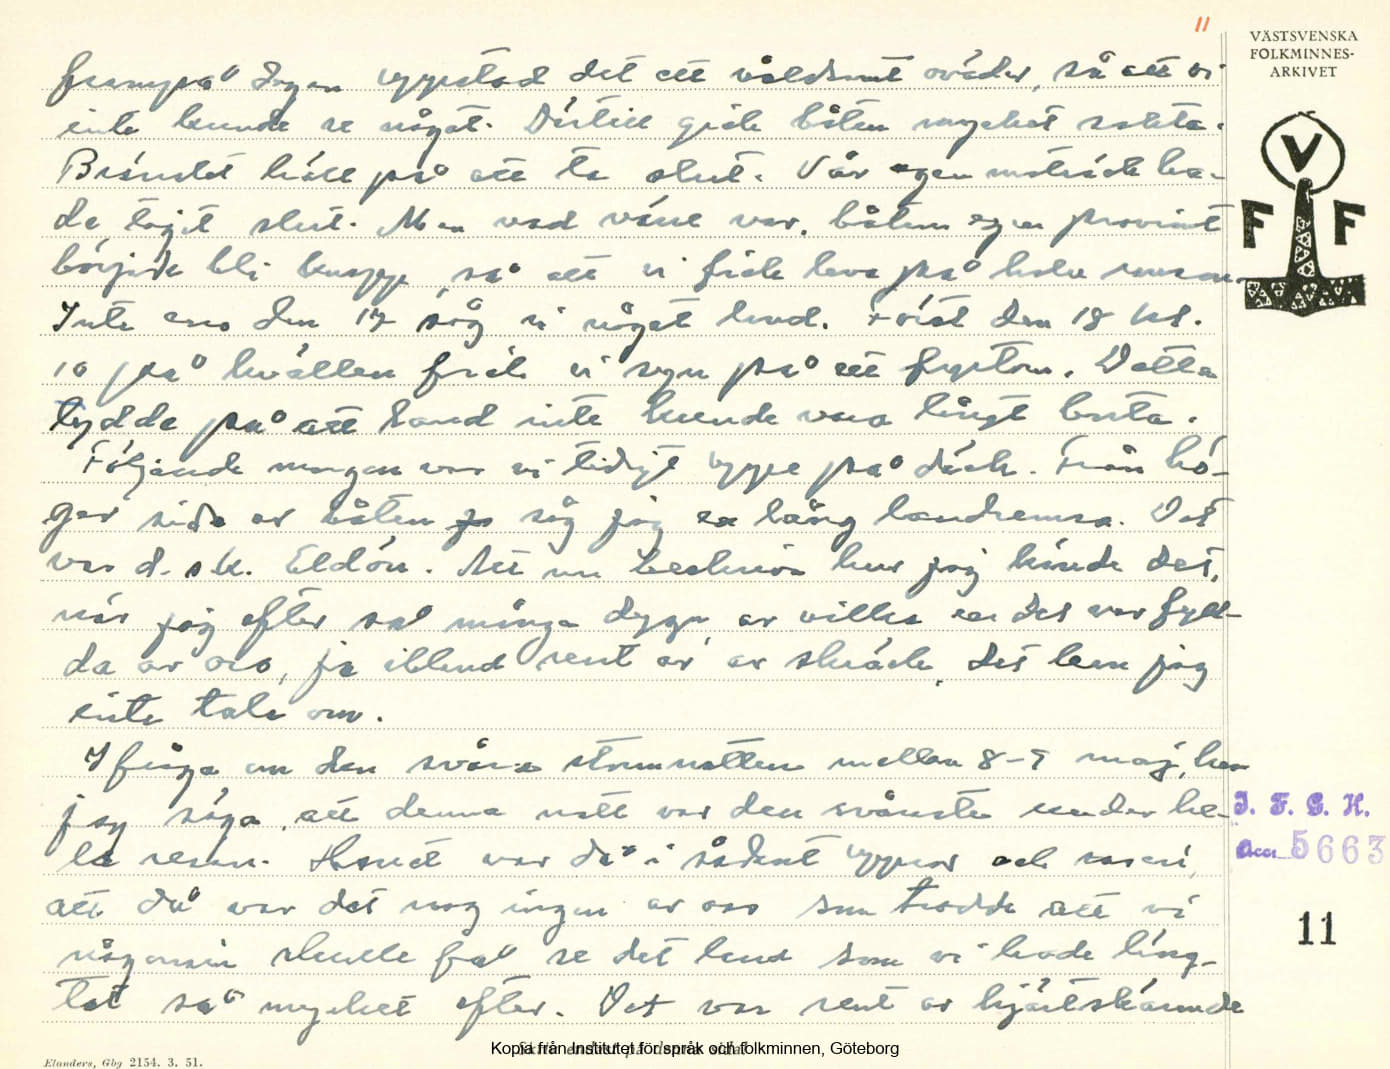 11
VÄSTSVENSKA
FOLKMINNES-
ARKIVET
V
F F
frampå dagen uppstod det ett våldsamt oväder, så att vi
inte kunde se något. Därtill gick båten mycket sakta.
Bränslet höll på att ta slut. Vår egen matsäck ha-
de tagit slut. Men vad värre var, båtens egen proviant
började bli knapp, så att vi fick leva på halv ranson.
Inte ens den 17 såg vi något land. Först den 18 kl.
10 på kvällen fick vi syn på ett fyrtorn. Detta
tydde på att land inte kunde vara långt borta.
Följande morgon var vi tidigt uppe på däck. Från hö-
ger sida av båten såg jag en lång landremsa. Det
var d. s k. Eldön. Att nu beskriva hur jag kände det,
när jag efter så många dygn, av vilka en del var fyll-
da av oro, ja ibland rent av av skräck, det kan jag
inte tala om.
I fråga om den svåra stormnatten mellan 8-9 maj, kan
jag säga, att denna natt var den svåraste under he-
la resan. Havet var då i sådant uppror och raseri,
att då var det nog ingen av oss som trodde att vi
någonsin skulle få se det land som vi hade läng-
tat så mycket efter. Det var rent av hjärtskärande
I. F. G. H.
Acc. 5663
11
Kopia från Institutet för språk och folkminnen, Göteborg
Elanders, Gbg 2154. 3. 51.